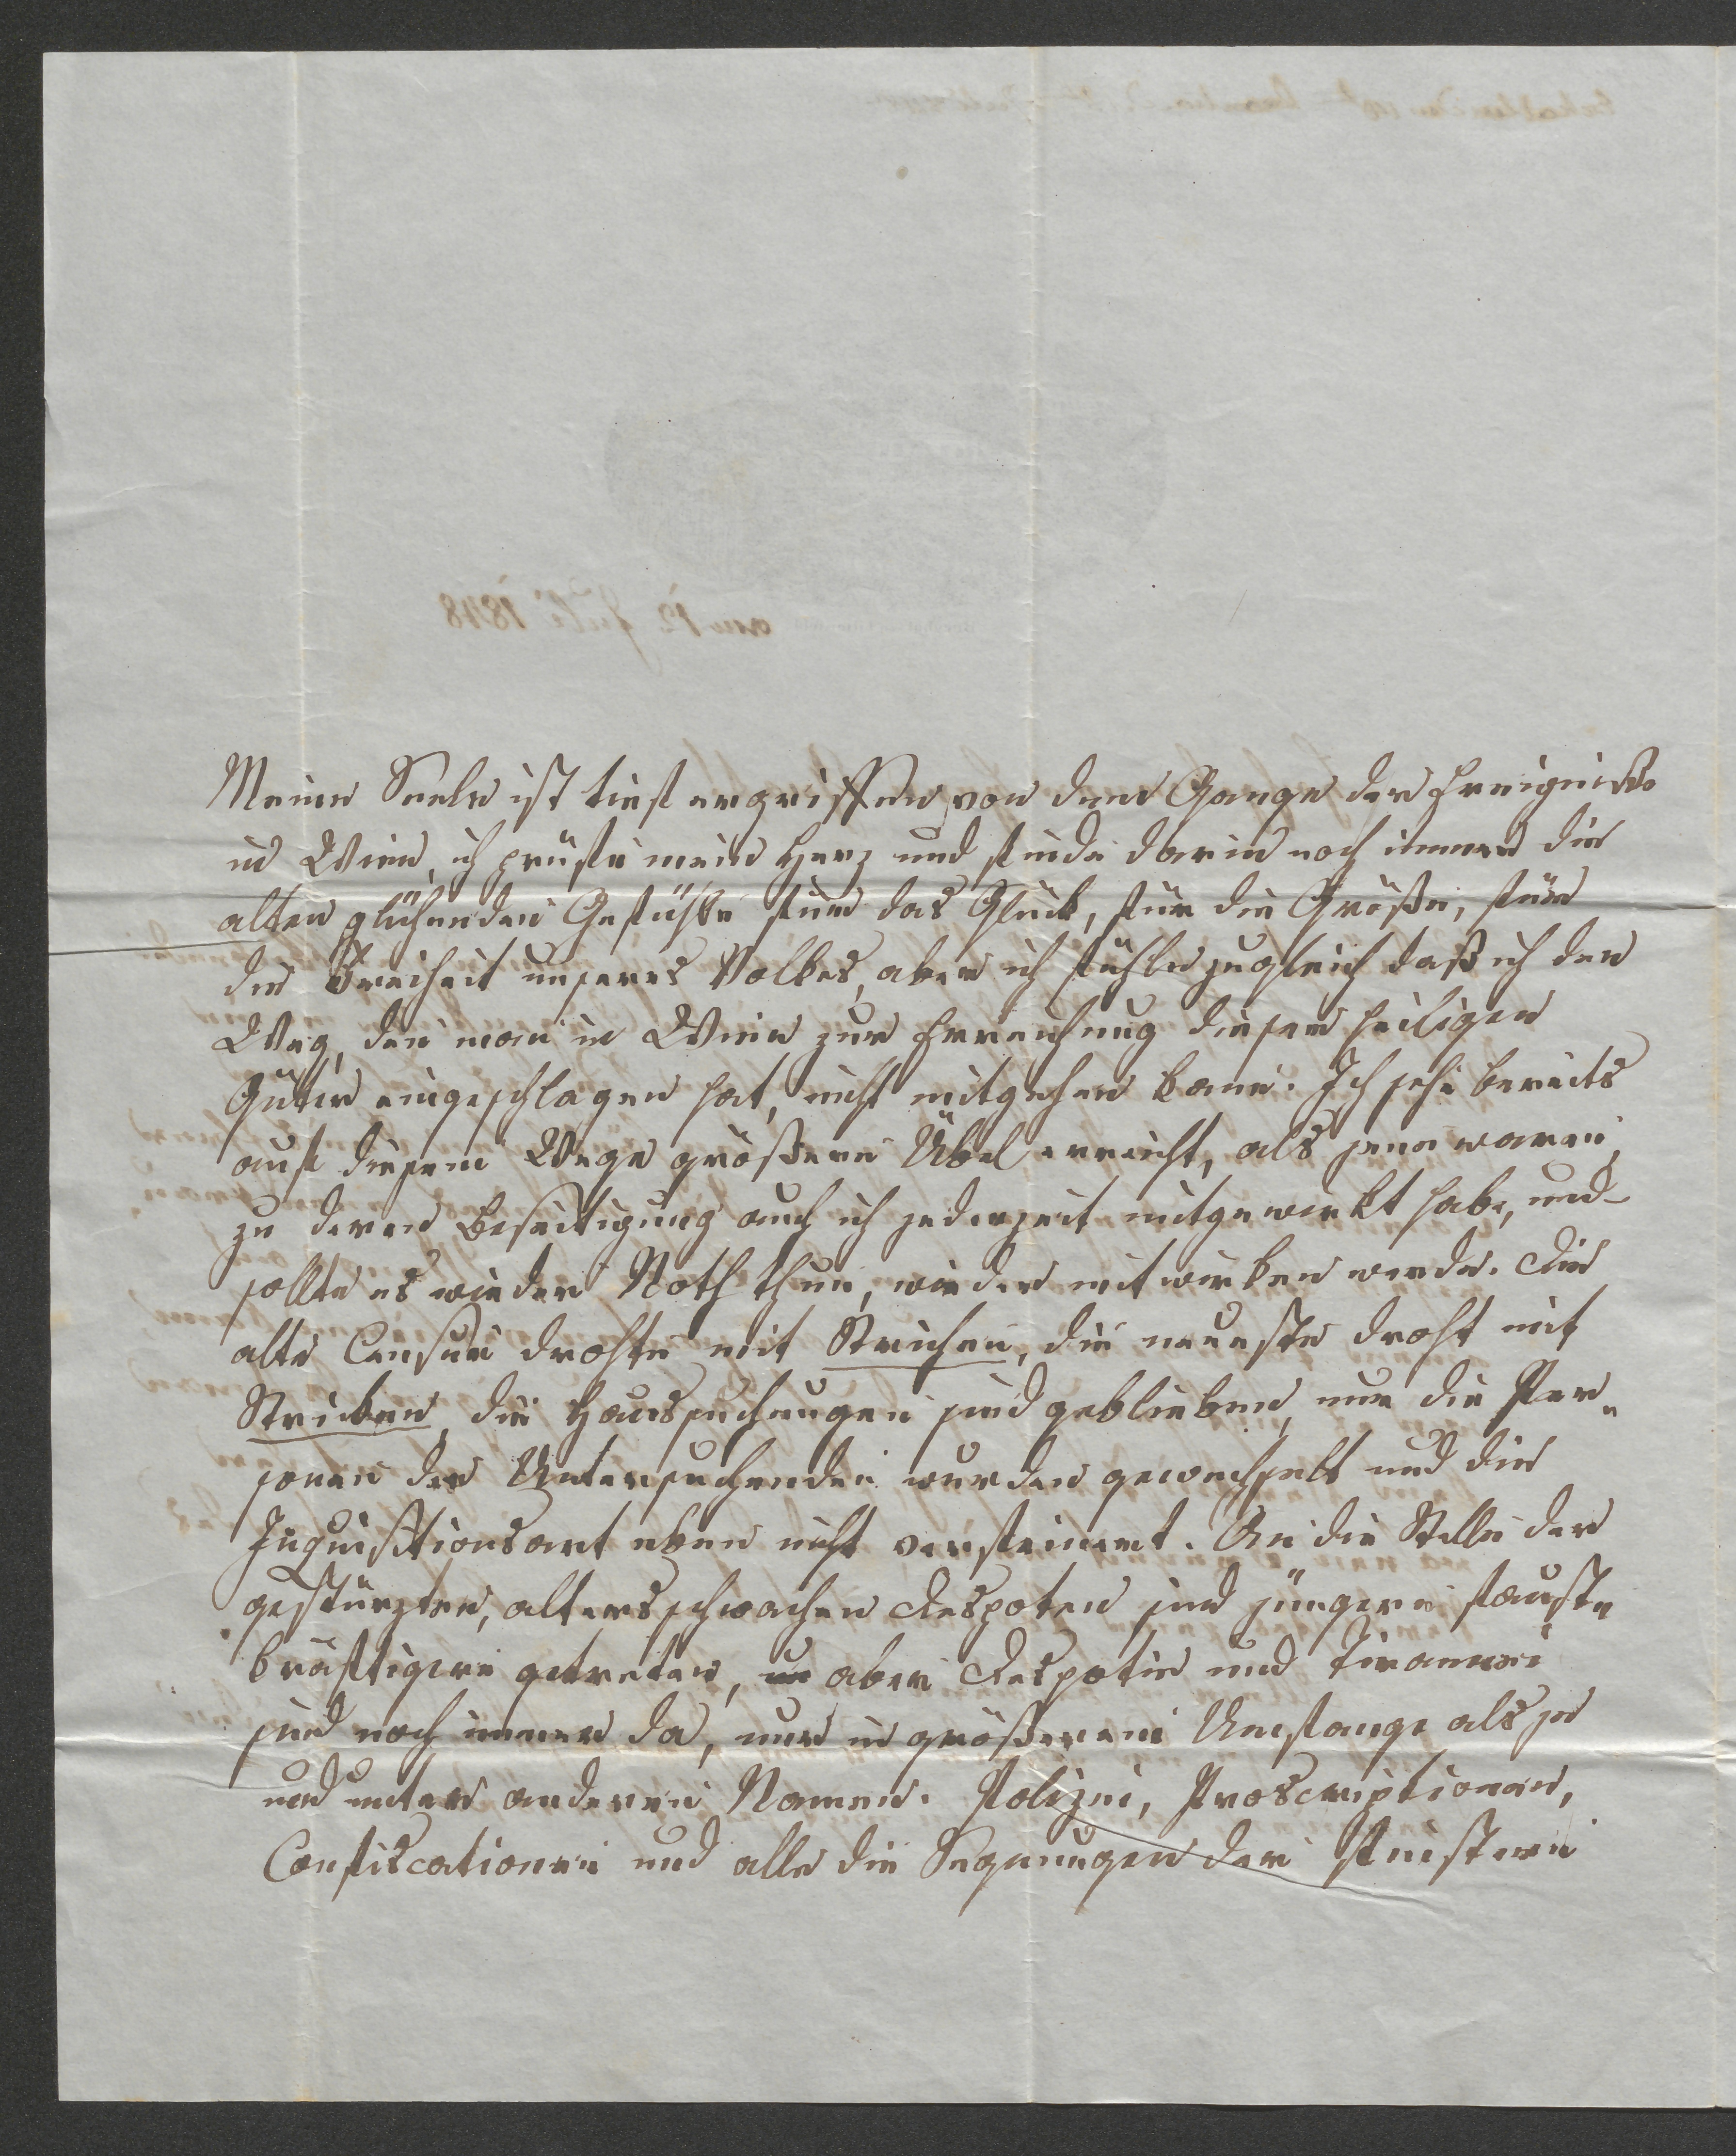 am 12 Juli 1848
Meine Seele ist tief ergriffen von dem Gange der Ereigniße
in Wien, ich prüfte mein Herz und finde darin noch immer die
alten glühenden Gefühle für das Glück, für die Größe, für
die Freiheit unseres Volkes, aber ich fühle zugleich daß ich den
Weg, den man in Wien zur Erreichung dieser heiligen
Güter eingeschlagen hat, nicht mitgehen kann. Ich sehe bereits
auf diesem Wege größere Übel erreicht, als jene waren,
zu deren Beseitigung auch ich jederzeit mitgewirkt habe, und
sollte es wieder Noth thun, wieder mitwirken werde. Die
alte Censur drohte mit Strichen, die neueste droht mit
Stricken, die Haussuchungen sind geblieben, nur die Per-
sonen der Untersuchenden wurden gewechselt und die
Inquisitionsart eben nicht verfeinert. An die Stelle der
gestürzten, altersschwachen Despoten sind jüngere faust-
kräftigere getreten, aber Despotie und Tirannei
sind noch immer da, nur in größerem Umfange als je
und unter anderen Namen. Polizei, Proscriptionen,
Confiscationen und alle die Segnungen der finstern